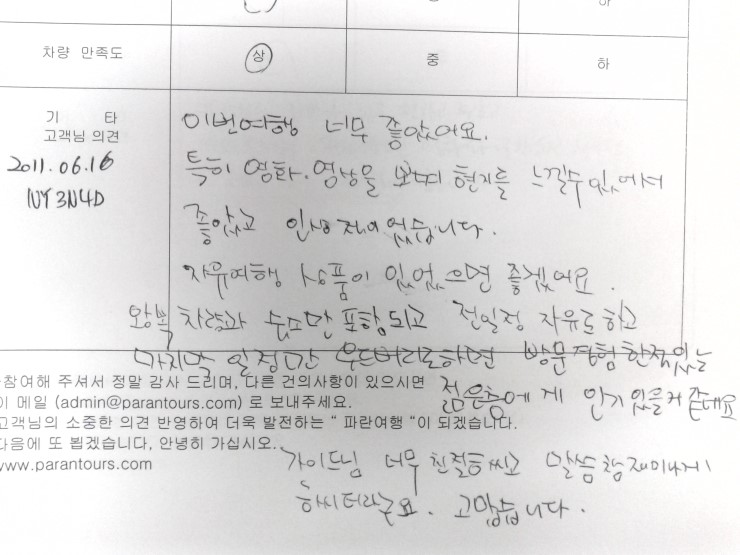 차량 만족도 상 중 하
기 타
고객님 의견
2011.06.16
NY3N4D
이번여행 너무 좋았어요.
특히 영화.영상을 보며 현지를 느낄수있어서
좋았고 인상 재미있었습니다.
자유여행 상품이 있었으면 좋겠어요.
왕복 차량과 숙소만 포함되고 전일정 자유로하고
마지막 일정만 우드버리로하면 방문경험한적있는
젊은층에게 인기있을거 같네요
참여해 주셔서 정말 감사 드리며, 다른 건의사항이 있으시면
이 메일 (admin@parantours.com) 로 보내주세요.
고객님의 소중한 의견 반영하여 더욱 발전하는 " 파란여행 "이 되겠습니다.
다음에 또 뵙겠습니다, 안녕히 가십시오..
www.parantours.com
가이드님 너무 친절하시고 말씀참재미나게
하시더라구요. 고맙습니다.